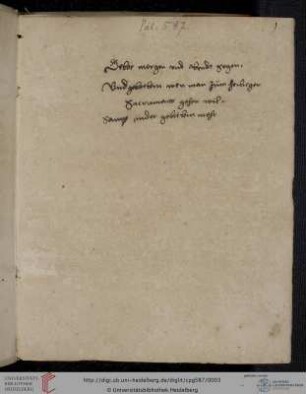 Pal. 587.
1
Gebet morgen und abendt segen.
Und gebetlein wen man zum heiligen
Sacrament gehen wil.
Sampt ander gebetlin mehr
UNIVERSITÄTS-
BIBLIOTHEK
HEIDELBERG
http://digi.ub.uni-heidelberg.de/diglit/cpg587/0003
© Universitätsbibliothek Heidelberg